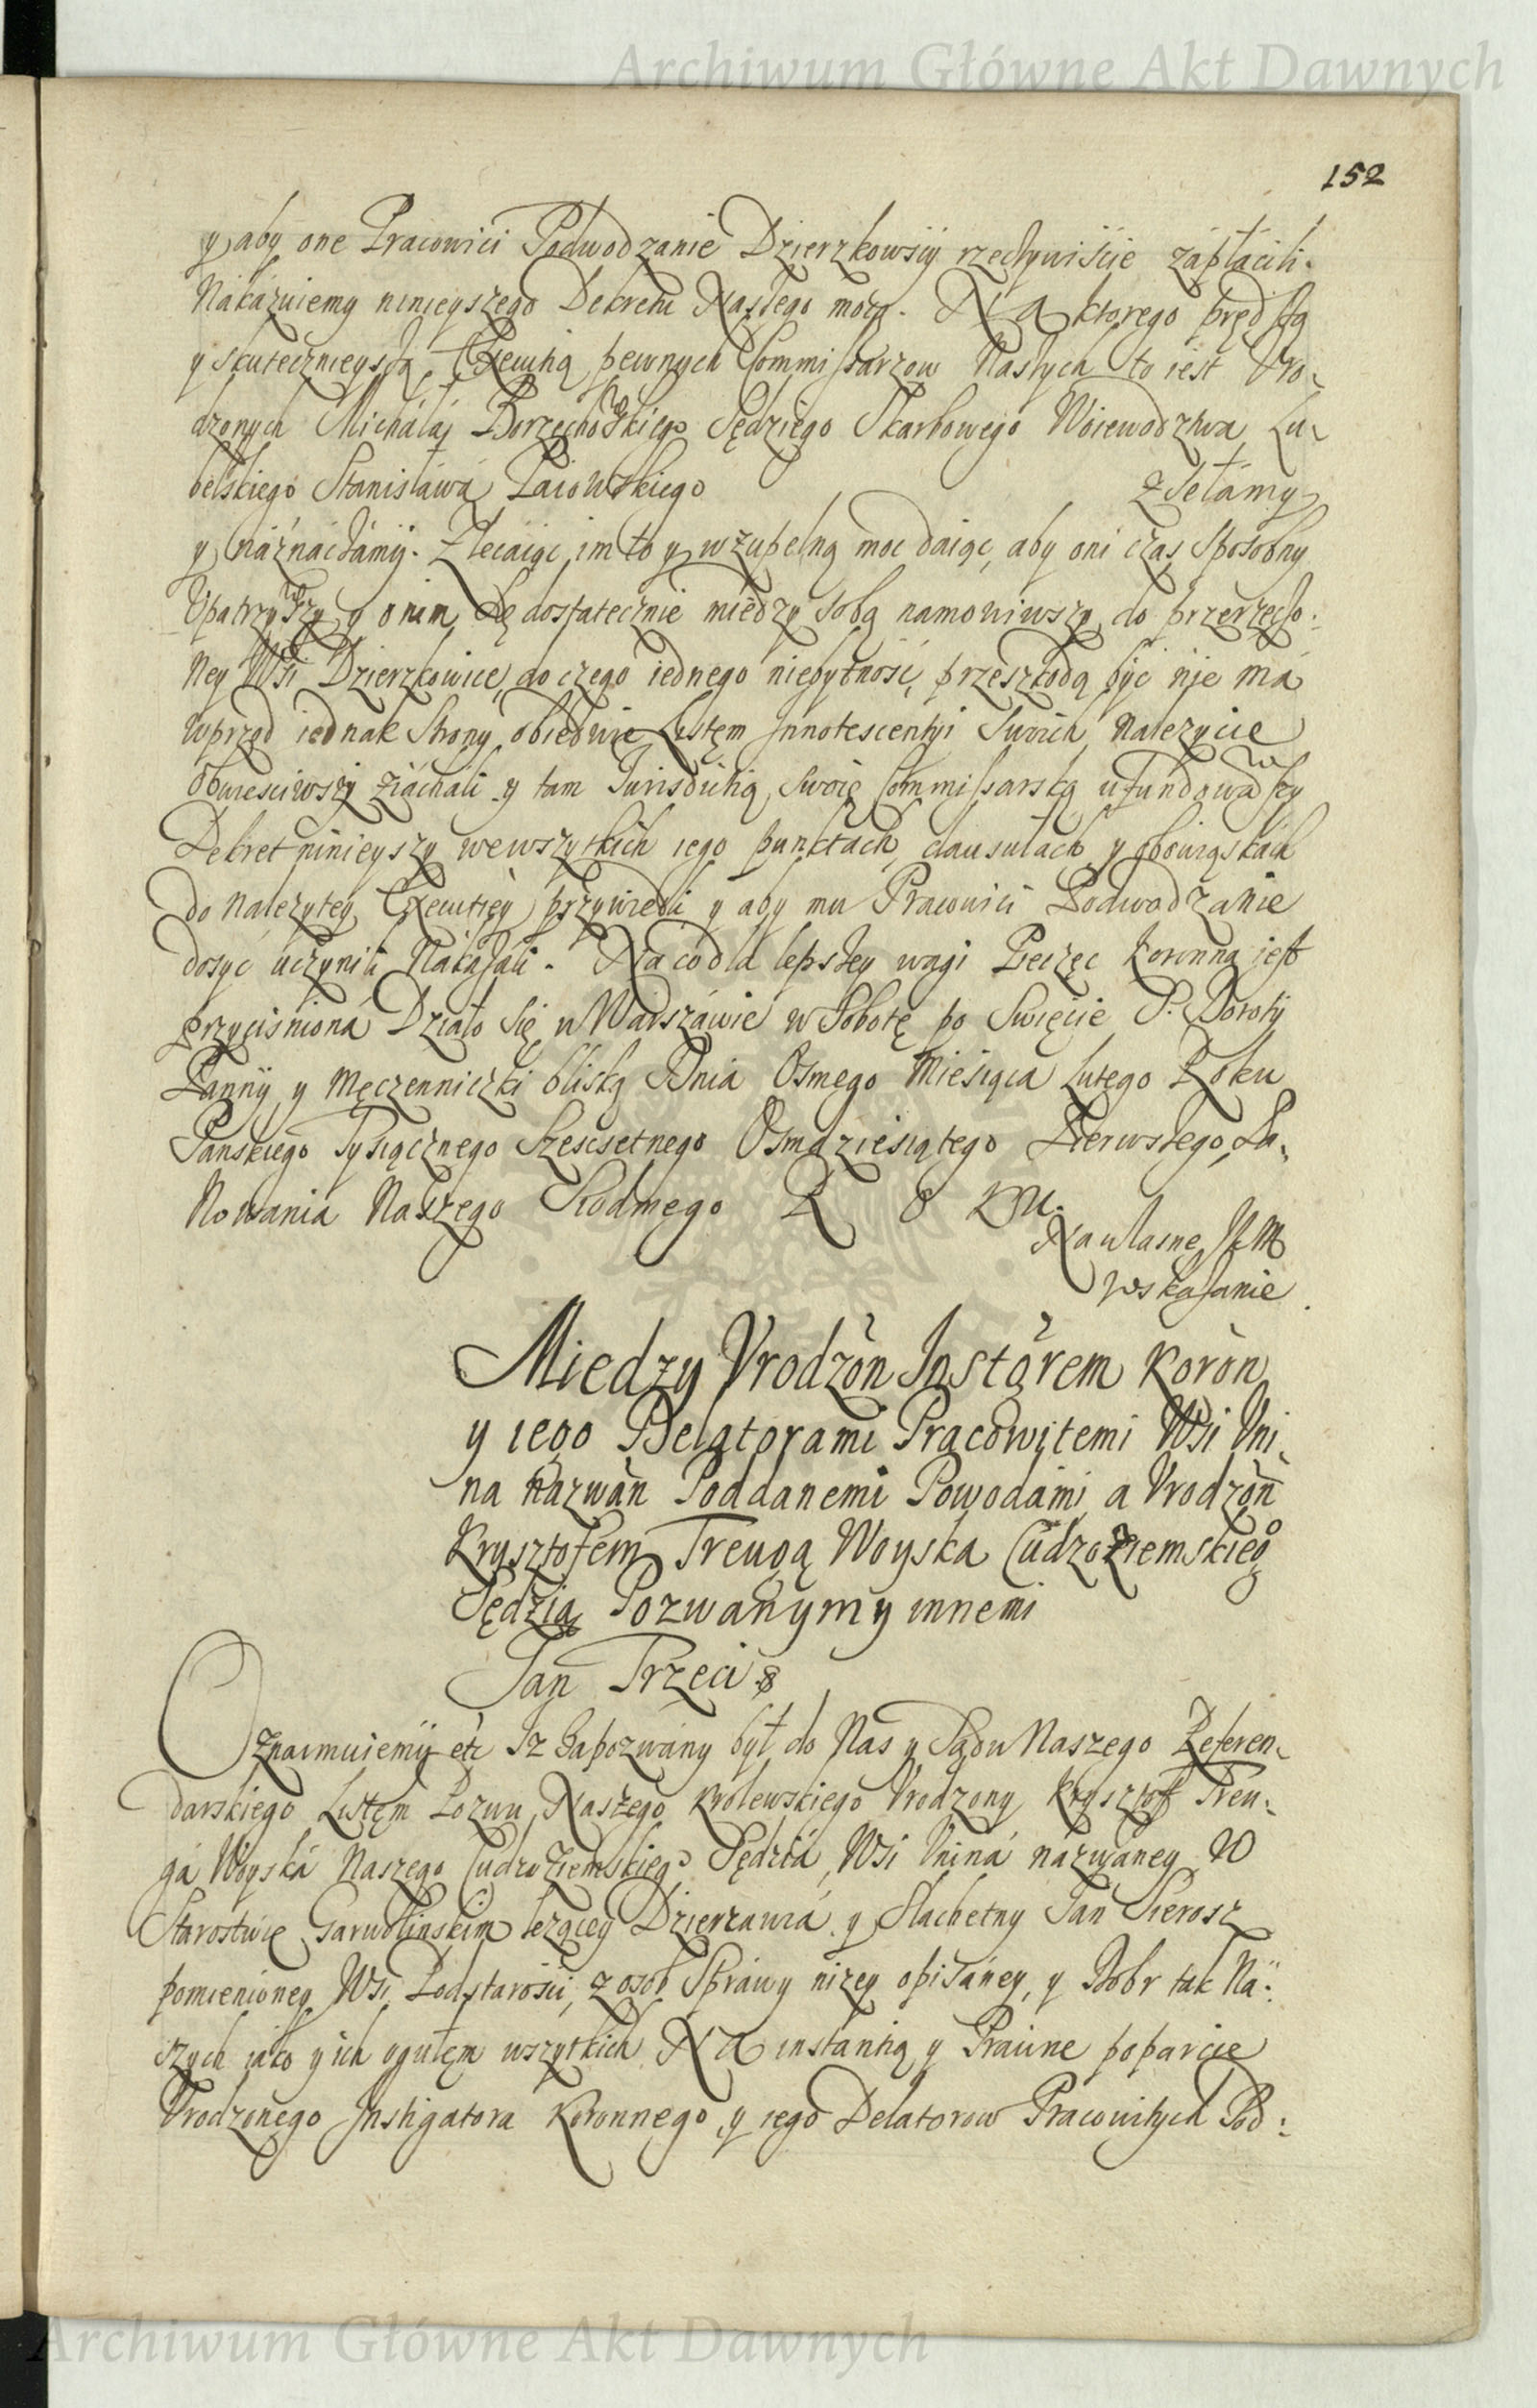 Archiwum Główne Akt Dawnych
152
y aby one Pracowici Podwodzanie Dzierzkowscy rzeczywiście zápłácili.
Nákázuiemy ninieyszego Dekretu Naszego mocą. Na ktorego prędszą
y skutecznieyszą Exekutią pewnych Commissarzow Naszych to iest Vro-
dzonych Micháłá Borzęckowskiego Sędziego Skarbowego Woiewodztwa Lu-
belskiego Stanisława Paiowskiego zsełámy
y náznáczámy. Zlecáiąc im to y w zupełną moc dáiąc, aby oni czas sposobny
Upatrzywszy y o nim się dostatecznie między sobą namowiwszy do przerzeczo-
ney Wsi Dzierzkowice, do czego iednego niebytność, przeszkodą być nie má
wprzod iednak Strony obiedwie Listem Innotescentyi Swoich Należycie
Obwieściwszy ziáchali y tam Jurisdictią Swoię Commissarską ufundowawszy
Dekret ninieyszy we wszytkich iego punktach, clausułach y obowiąskách
do należytey Exekutiey przywiedli y aby mu Pracowici Podwodzanie
dosyć uczynili Nákazáli. Ná co dlá lepszey wagi Pieczęć Koronna iest
przyciśnioná Działo się w Wárszáwie w Sobotę po Swięcie S. Doroty
Panny y Męczenniczki bliską Dnia Osmego Miesiąca Lutego Roku
Panskiego Tysiącznego Szescsetnego Osmdziesiątego Pierwszego, Pa-
Nowania Naszego Siodmego Roku.
Na własne JKM
wskazanie
Miedzy Vrodzon Instorem Koron
y iego Delatorami Pracowitemi Wsi Vni-
na Nazwan Poddanemi Powodámi a Vrodzon
Krysztofem Treugą Woyska Cudzoziemskieg
Sędzią Pozwanym y innemi
Jan Trzeci
Oznaimuiemy etc Iz Zapozwány był do Nas y Sądu Naszego Referen-
darskiego Listem Pozwu Naszego Krolewskiego Vrodzony Krysztoff Treu-
gá Woyská Naszego Cudzoziemskiego Sędziá, Wsi Vniná názwáney W
Starostwie Garwolinskim leżącey Dzierzawcá y Slachetny Jan Sierosz
pomienioney Wsi Podstarości, z osob Spráwy niżey opisáney, y Dobr tak Ná-
szych iáko y ich ogułem wszytkich Na instantią y Prawne poparcie
Vrodzonego Instigatora Koronnego, y iego Delatorow Pracowitych Pod-
Archiwum Główne Akt Dawnych